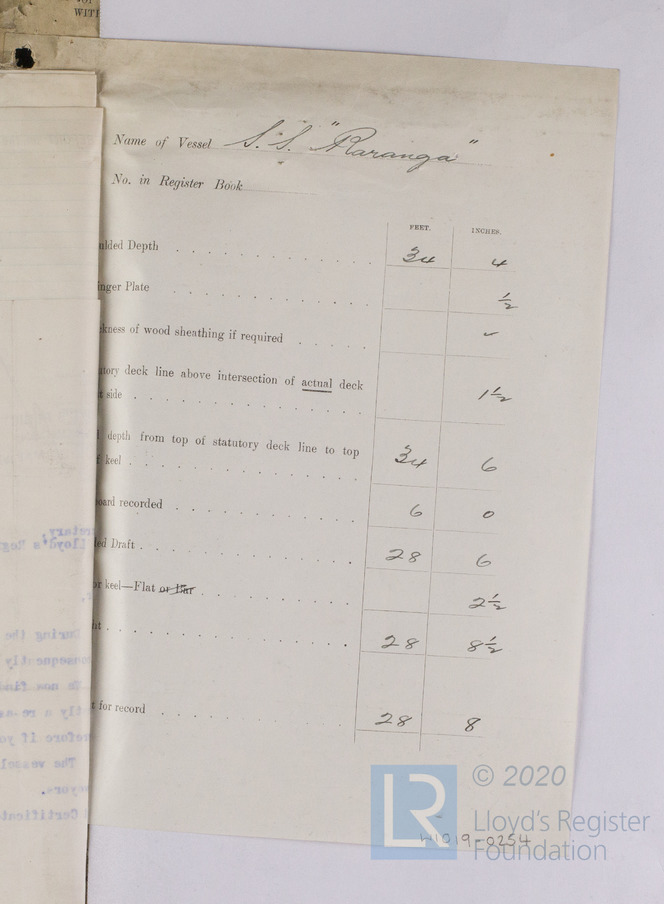 WITH
Name of Vessel S.S. "Raranga"
No. in Register Book
FEET. INCHES.
ulded Depth 34 4
inger Plate 1/2
kness of wood sheathing if required ✓
utory deck line above intersection of actual deck
t side 1 1/2
l depth from top of statutory deck line to top
f keel 34 6
oard recorded 6 0
led Draft 28 6
or keel—Flat or Bar 2 1/2
ht 28 8 1/2
t for record 28 8
retary,
Lloyd's Reg
r,
During the
onsequently
We now find
tly a re-as
refore if yo
The vessel
wyers.
Certificate
W1019-0254
LR
© 2020
Lloyd's Register
Foundation